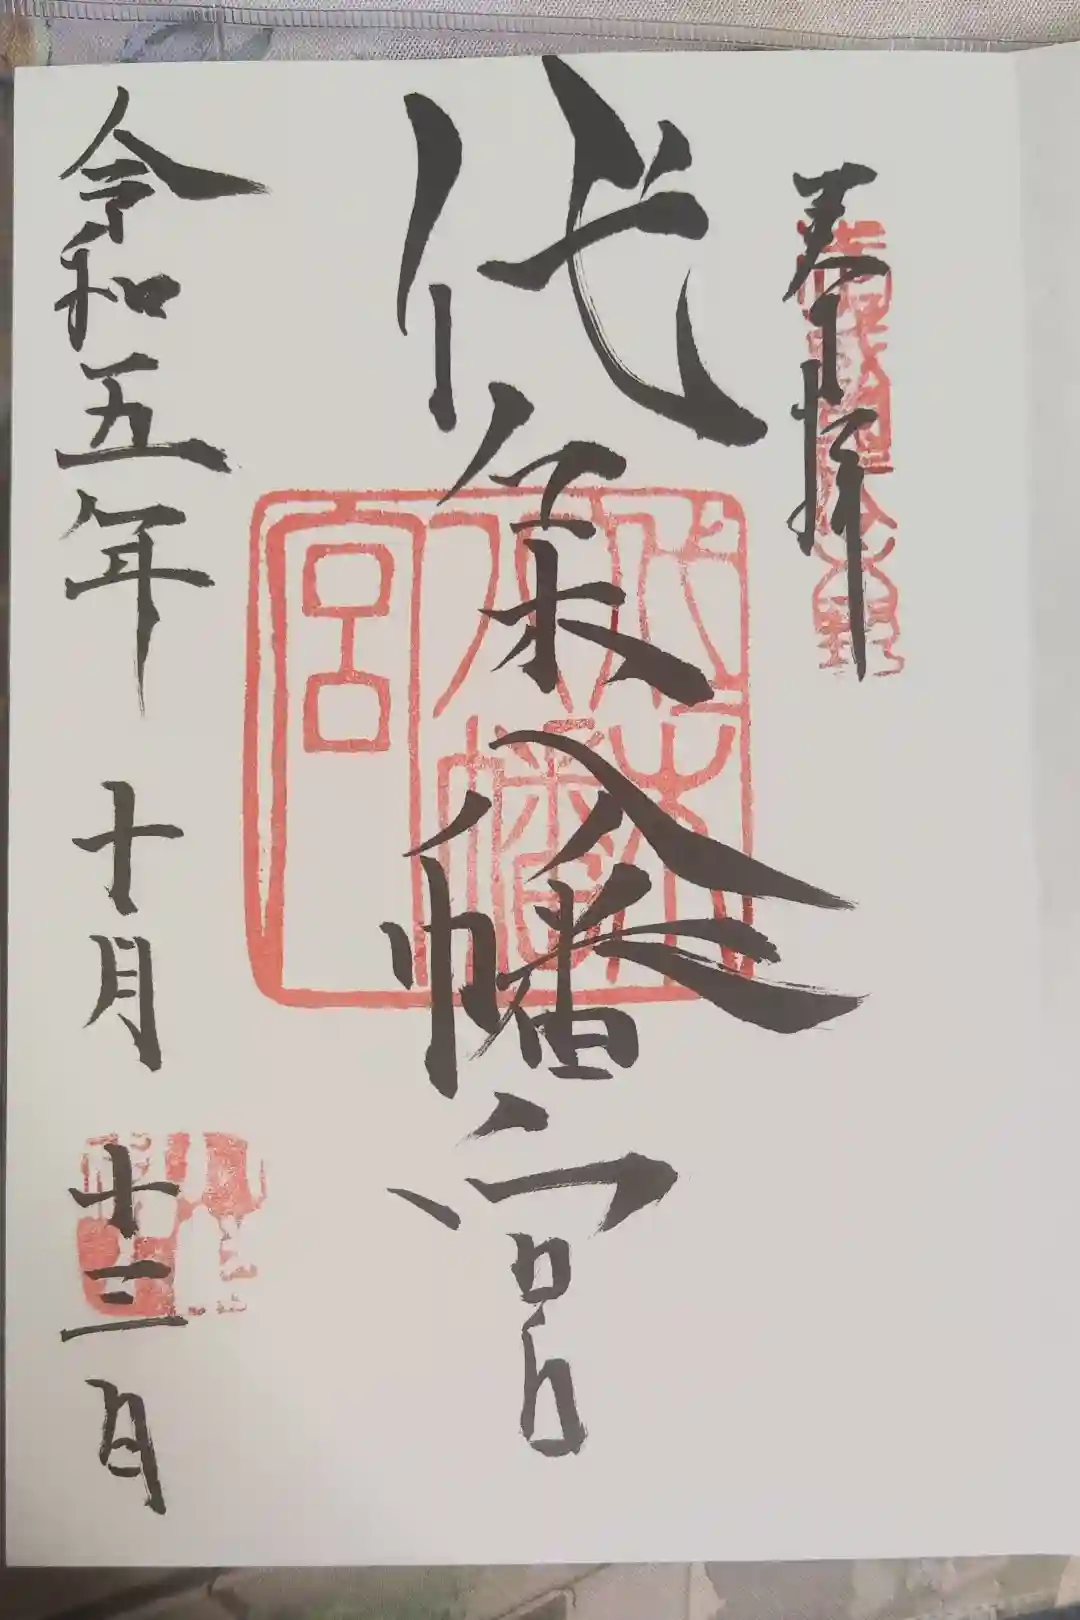 奉拝
代々木八幡宮
代々木八幡宮
令和五年 十月 十三日